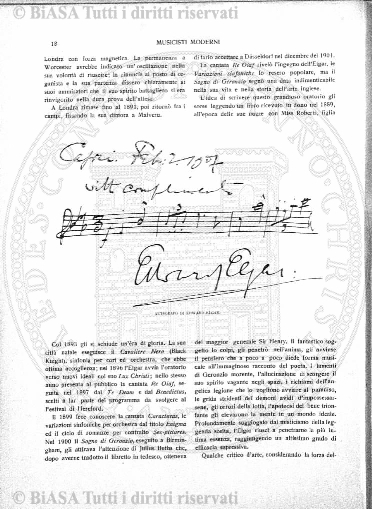 © BiASA Tutti i diritti riservati
18 MUSICISTI MODERNI
Londra con forza magnetica. La permanenza a
Worcester avrebbe indicato un'oscillazione nella
sua volontà di riuscire: la rinuncia al posto di or-
ganista e la sua partenza dissero chiaramente ai
suoi ammiratori che il suo spirito battagliero si era
rinvigorito nella dura prova dell'attesa.
A Londra rimase fino al 1891, poi ritornò fra i
campi, fissando la sua dimora a Malvern.
di farlo accettare a Düsseldorf nel dicembre del 1901.
La cantata Re Olaf rivelò l'ingegno dell'Elgar, le
Variazioni sinfoniche lo resero popolare, ma il
Sogno di Geronzio segnò una data indimenticabile
nella sua vita e nella storia dell'arte inglese.
L'idea di scrivere questo grandioso oratorio gli
sorse leggendo un libro ricevuto in dono nel 1889,
all'epoca delle sue nozze con Miss Roberts, figlia
Capri. Feb. 2 1907
with compliments
Edward Elgar.
AUTOGRAFO DI EDWARD ELGAR.
Col 1893 gli si schiude un'èra di gloria. La sua
città natale eseguisce il Cavaliere Nero (Black
Knight), sinfonia per cori ed orchestra, che ebbe
ottima accoglienza; nel 1896 l'Elgar avvia l'oratorio
verso nuovi ideali col suo Lux Christi; nello stesso
anno presenta al pubblico la cantata Re Olaf, se-
guita nel 1897 dal Te Deum e dal Benedictus,
scritti a far parte del programma da svolgere al
Festival di Hereford.
Il 1899 fece conoscere la cantata Caractacus, le
variazioni sinfoniche per orchestra dal titolo Enigma
ed il ciclo di romanze per contralto Sea-pictures.
Nel 1900 il Sogno di Geronzio, eseguito a Birmin-
gham, gli attirava l'attenzione di Julius Buths che,
dopo averne tradotto il libretto in tedesco, otteneva
del maggior generale Sir Henry. Il fantastico sog-
getto lo colpì, gli penetrò nell'anima, gli avvinse
il pensiero che a poco a poco diede forma musi-
cale all'immaginoso racconto del poeta. I lamenti
di Geronzio morente, l'allucinazione che scioglie il
suo spirito vagante negli spazi, i richiami dell'an-
gelica legione che lo vogliono avviare al paradiso,
le grida stridenti dei demoni avidi d'impossessar-
sene, gli orrori della lotta, l'apoteosi del bene trion-
fante gli elevarono la mente in un mondo ideale.
Profondamente soggiogato dal misticismo della leg-
genda scelta, l'Elgar riuscì a penetrarne la più in-
tima essenza, raggiungendo un altissimo grado di
efficacia espressiva.
Qualche critico d'arte, considerando la forza del-
© BiASA Tutti i diritti riservati